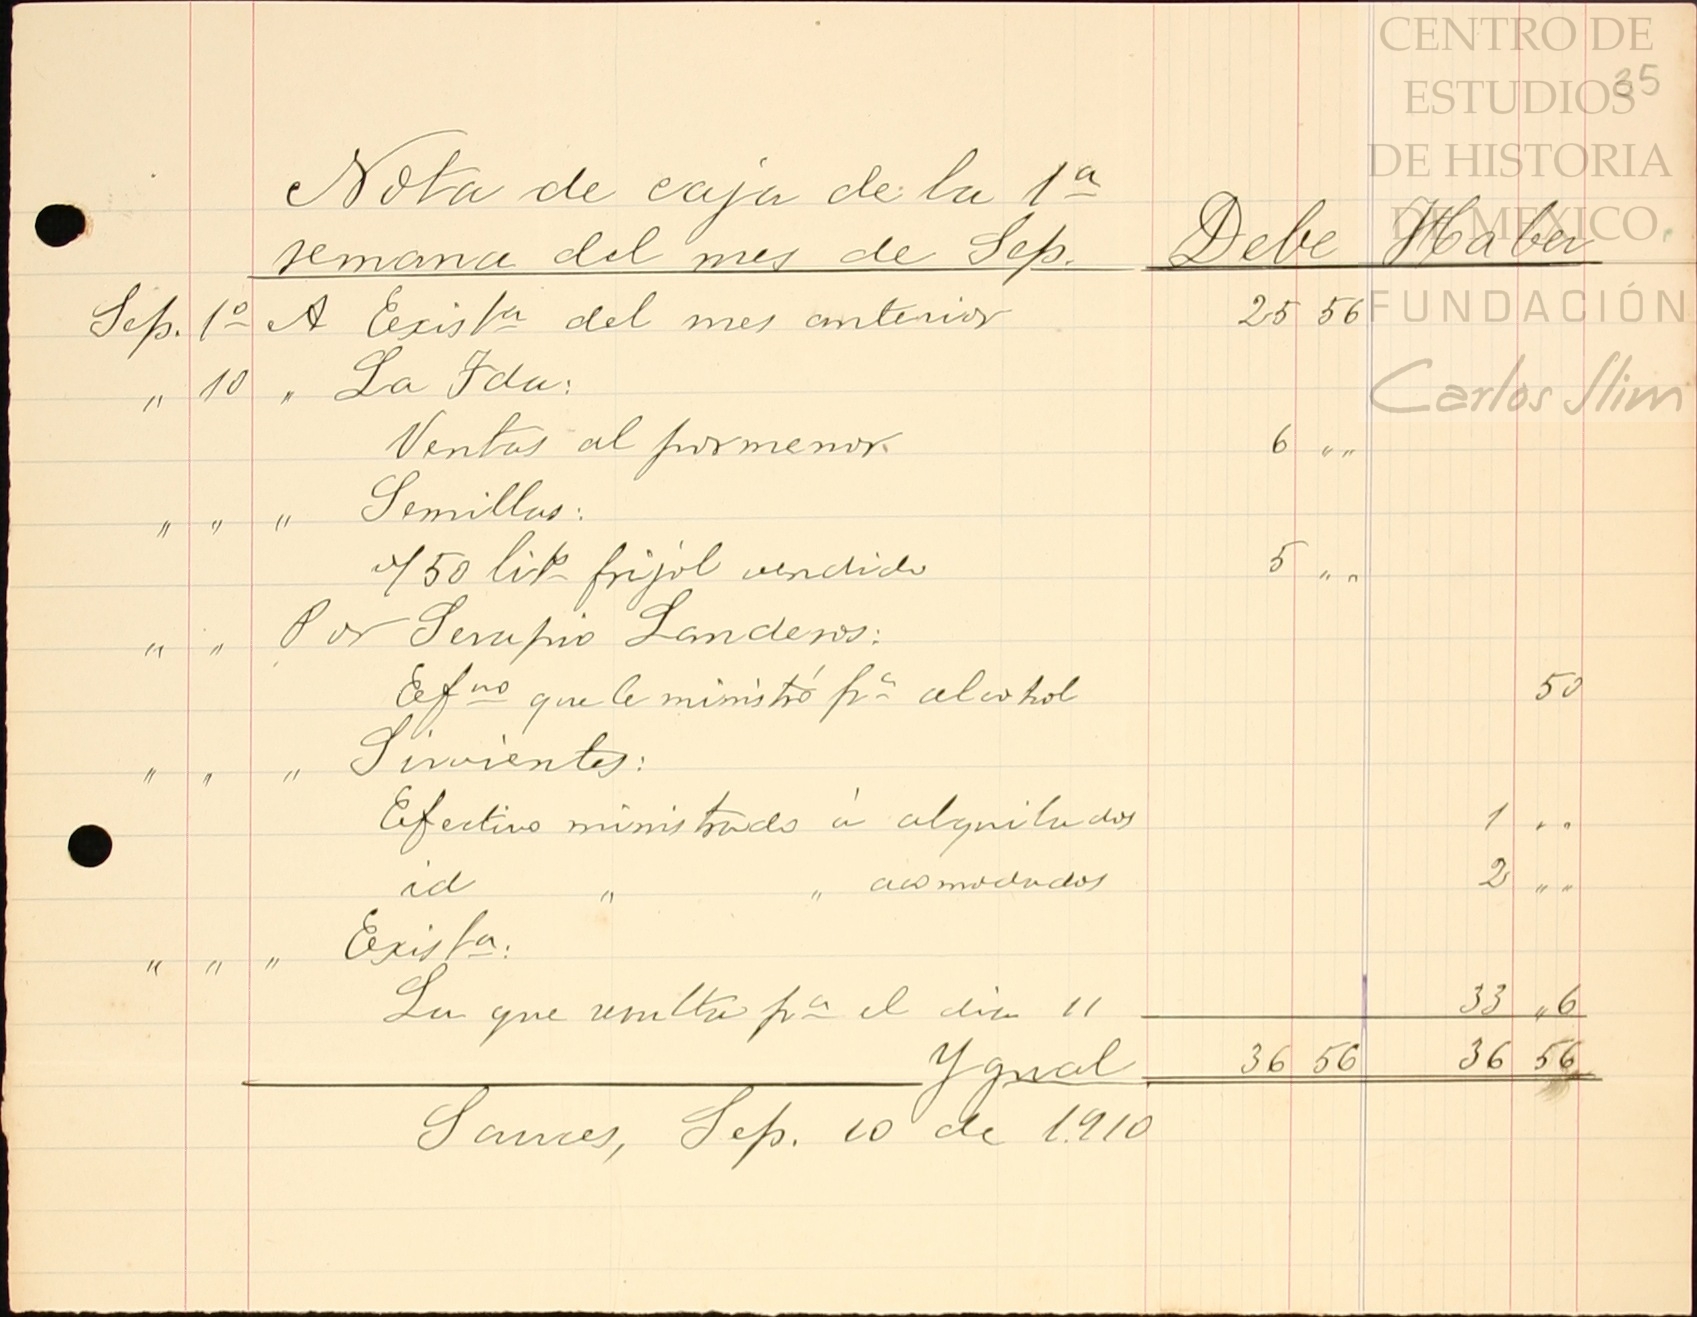 CENTRO DE
ESTUDIOS
DE HISTORIA
DE MEXICO.
FUNDACIÓN
Carlos Slim
35
Nota de caja de la 1ª
semana del mes de Sep. Debe Haber
Sep. 1º A Existª del mes anterior 25 56
" 10 " La Fda:
Ventas al pormenor. 6 " "
" " " Semillas:
50 lits frijol vendido 5 " "
" " Por Serapio Landeros:
Efvo que le ministró pª alcohol 50
" " " Sirvientes:
Efectivo ministrado á alquilados 1 " "
id " " acomodados 2 " "
" " " Existª:
La que resulta pª el dia 11 33 "6
Ygual 36 56 36 56
Sauces, Sep. 10 de 1.910